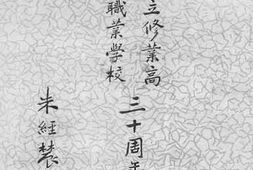 立修業高
職業學校
三十周年
朱經農